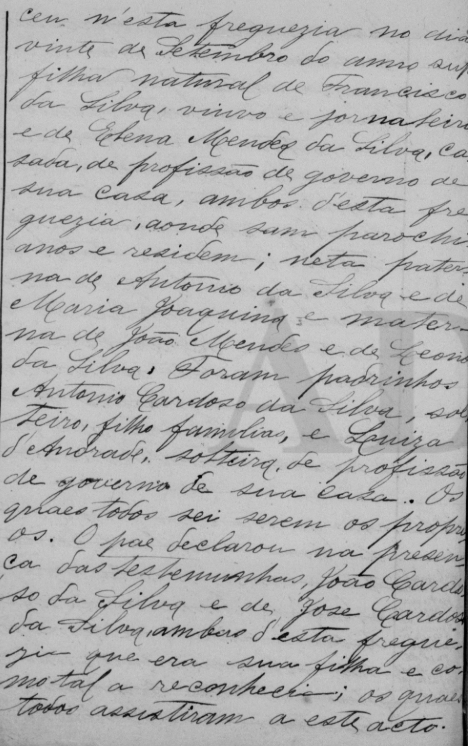 ceu n'esta freguezia no dia
vinte de Setembro do anno sup
filha natural de Francisco
da Silva, viuvo e jornaleiro
e de Elena Mendes da Silva, ca
sada, de profissão de governo de
sua casa, ambos d'esta fre
guezia, aonde sam parochi
anos e residem; neta pater
na de Antonio da Silva e de
Maria Joaquina e mater
na de João Mendes e de Leono
da Silva. Foram padrinhos
Antonio Cardoso da Silva, sol
teiro, filho familias, e Luiza
d'Andrade, solteira, de profissão
de governo de sua casa. Os
quaes todos sei serem os propri
os. O pae declarou na presen
ça das testemunhas, João Cardo
so da Silva e de Jose Cardoso
da Silva, ambos d'esta fregue
zia que era sua filha e co
mo tal a reconhecia; os quaes
todos assistiram a este acto.
AD